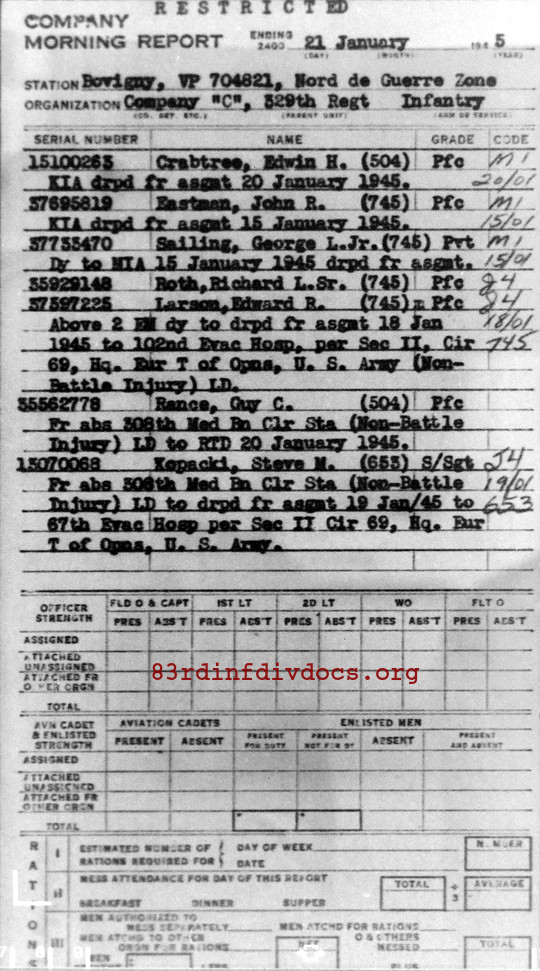 RESTRICTED
COMPANY
MORNING REPORT ENDING 2400 21 January 194 5
(DAY) (MONTH) (YEAR)
STATION Bovigny, VP 704821, Nord de Guerre Zone
ORGANIZATION Company "C", 329th Regt Infantry
(CO. DET. ETC.) (PARENT UNIT) (ARM OR SERVICE)
SERIAL NUMBER NAME GRADE CODE
15100263 Crabtree, Edwin H. (504) Pfc M1
KIA drpd fr asgmt 20 January 1945. 20/01
37695819 Eastman, John R. (745) Pfc M1
KIA drpd fr asgmt 15 January 1945. 15/01
37733470 Sailing, George L.Jr. (745) Pvt M1
Dy to MIA 15 January 1945 drpd fr asgmt. 15/01
35929148 Roth,Richard L.Sr. (745) Pfc J4
37597225 Larson,Edward R. (745) Pfc J4
Above 2 EM dy to drpd fr asgmt 18 Jan 18/01
1945 to 102nd Evac Hosp, per Sec II, Cir 745
69, Hq. Eur T of Opns, U. S. Army (Non-
Battle Injury) LD.
35562778 Rance, Guy C. (504) Pfc
Fr abs 308th Med Bn Clr Sta (Non-Battle
Injury) LD to RTD 20 January 1945.
13070068 Kopacki, Steve M. (653) S/Sgt J4
Fr abs 308th Med Bn Clr Sta (Non-Battle 19/01
Injury) LD to drpd fr asgmt 19 Jan/45 to 653
67th Evac Hosp per Sec II Cir 69, Hq. Eur
T of Opns, U. S. Army.
OFFICER STRENGTH FLD O & CAPT 1ST LT 2D LT WO FLT O
PRES ABS'T PRES ABS'T PRES ABS'T PRES ABS'T PRES ABS'T
ASSIGNED
ATTACHED UNASSIGNED
ATTACHED FR OTHER ORGN
TOTAL
83rdinfdivdocs.org
AVN CADET & ENLISTED STRENGTH AVIATION CADETS ENLISTED MEN
PRESENT ABSENT PRESENT FOR DUTY PRESENT NOT FOR DY ABSENT PRESENT AND ABSENT
ASSIGNED
ATTACHED UNASSIGNED
ATTACHED FR OTHER ORGN
TOTAL
RATIONS
I ESTIMATED NUMBER OF RATIONS REQUIRED FOR DAY OF WEEK DATE NUMBER
II MESS ATTENDANCE FOR DAY OF THIS REPORT TOTAL ÷ 3 AVERAGE
BREAKFAST DINNER SUPPER
III MEN AUTHORIZED TO MESS SEPARATELY MEN ATCHD FOR RATIONS
MEN ATCHD TO OTHER ORGN FOR RATIONS NET O & OTHERS MESSED TOTAL
MEN LESS PLUS